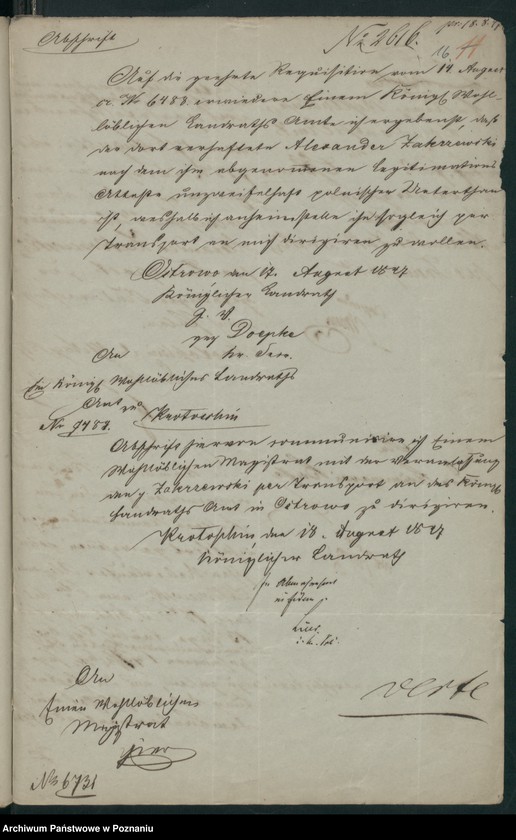 Abschrift
No 2616.
pr. 18. 8. 47
16
Auf die geehrte Requisition vom 14 August
cr. No 6488 erwiedere Einem Königl Wohl-
löblichen Landraths Amte ich ergebenst, daß
der dort verhaftete Alexander Zakrzewski
nach dem ihm abgenommenen Legitimations
Atteste unzweifelhaft polnischer Unterthan
ist, weshalb ich anheimstelle ihn sogleich per
Transport an mich dirigiren zu wollen.
Ostrowo den 17. August 1847
Königlicher Landrath
gez Doepke
Kr. Secr.
An
Ein Königl Wohllöbliches Landraths
Amt zu
Krotoschin
No 9488.
Abschrift hiervon communicire ich Einem
Wohllöblichen Magistrat mit der Veranlassung
den p Zakrzewski per Transport an das Königl
Landraths Amt in Ostrowo zu dirigiren.
Krotoschin den 18. August 1847
Königlicher Landrath
In Abwesenheit
An
Einen Wohllöblichen
Magistrat
hier
No 6731
verte
Archiwum Państwowe w Poznaniu